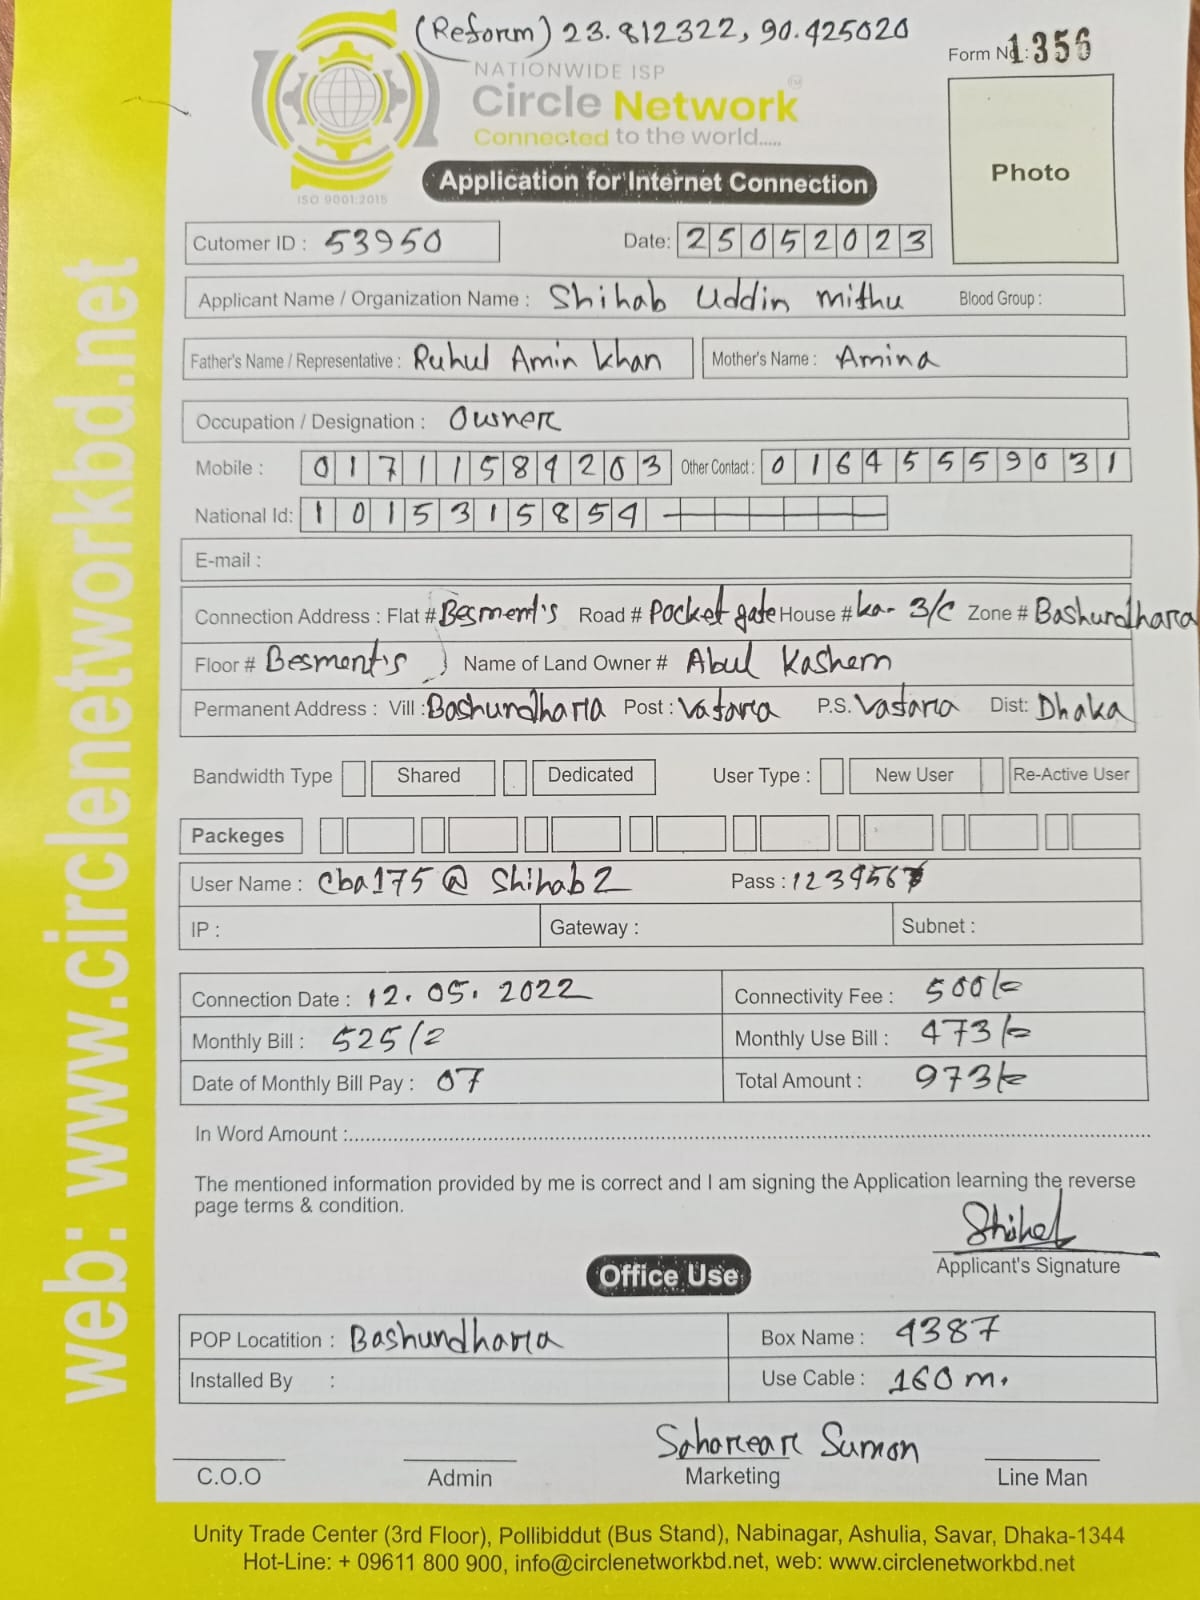 (Reform) 23.812322, 90.425020
Form No.: 1356
NATIONWIDE ISP
Circle Network
Connected to the world.....
ISO 9001:2015
Application for Internet Connection
Photo
Cutomer ID : 53950 Date: 25052023
Applicant Name / Organization Name : Shihab Uddin Mithu Blood Group :
Father's Name / Representative : Ruhul Amin Khan Mother's Name : Amina
Occupation / Designation : Owner
Mobile : 01711584203 Other Contact : 01645559031
National Id: 1015315854
E-mail :
Connection Address : Flat # Besment's Road # Pocket gate House # ka- 3/C Zone # Bashundhara
Floor # Besment's Name of Land Owner # Abul Kashem
Permanent Address : Vill : Bashundhara Post : Vatara P.S. Vatara Dist: Dhaka
Bandwidth Type Shared Dedicated User Type : New User Re-Active User
Packeges
User Name : cba175@Shihab2 Pass : 1234567
IP : Gateway : Subnet :
Connection Date : 12.05.2022 Connectivity Fee : 500/=
Monthly Bill : 525/= Monthly Use Bill : 473/=
Date of Monthly Bill Pay : 07 Total Amount : 973/=
In Word Amount :
The mentioned information provided by me is correct and I am signing the Application learning the reverse
page terms & condition.
Shihab
Applicant's Signature
Office Use
POP Locatition : Bashundhara Box Name : 4387
Installed By : Use Cable : 160 m.
Saharear Sumon
C.O.O Admin Marketing Line Man
Unity Trade Center (3rd Floor), Pollibiddut (Bus Stand), Nabinagar, Ashulia, Savar, Dhaka-1344
Hot-Line: + 09611 800 900, info@circlenetworkbd.net, web: www.circlenetworkbd.net
web: www.circlenetworkbd.net